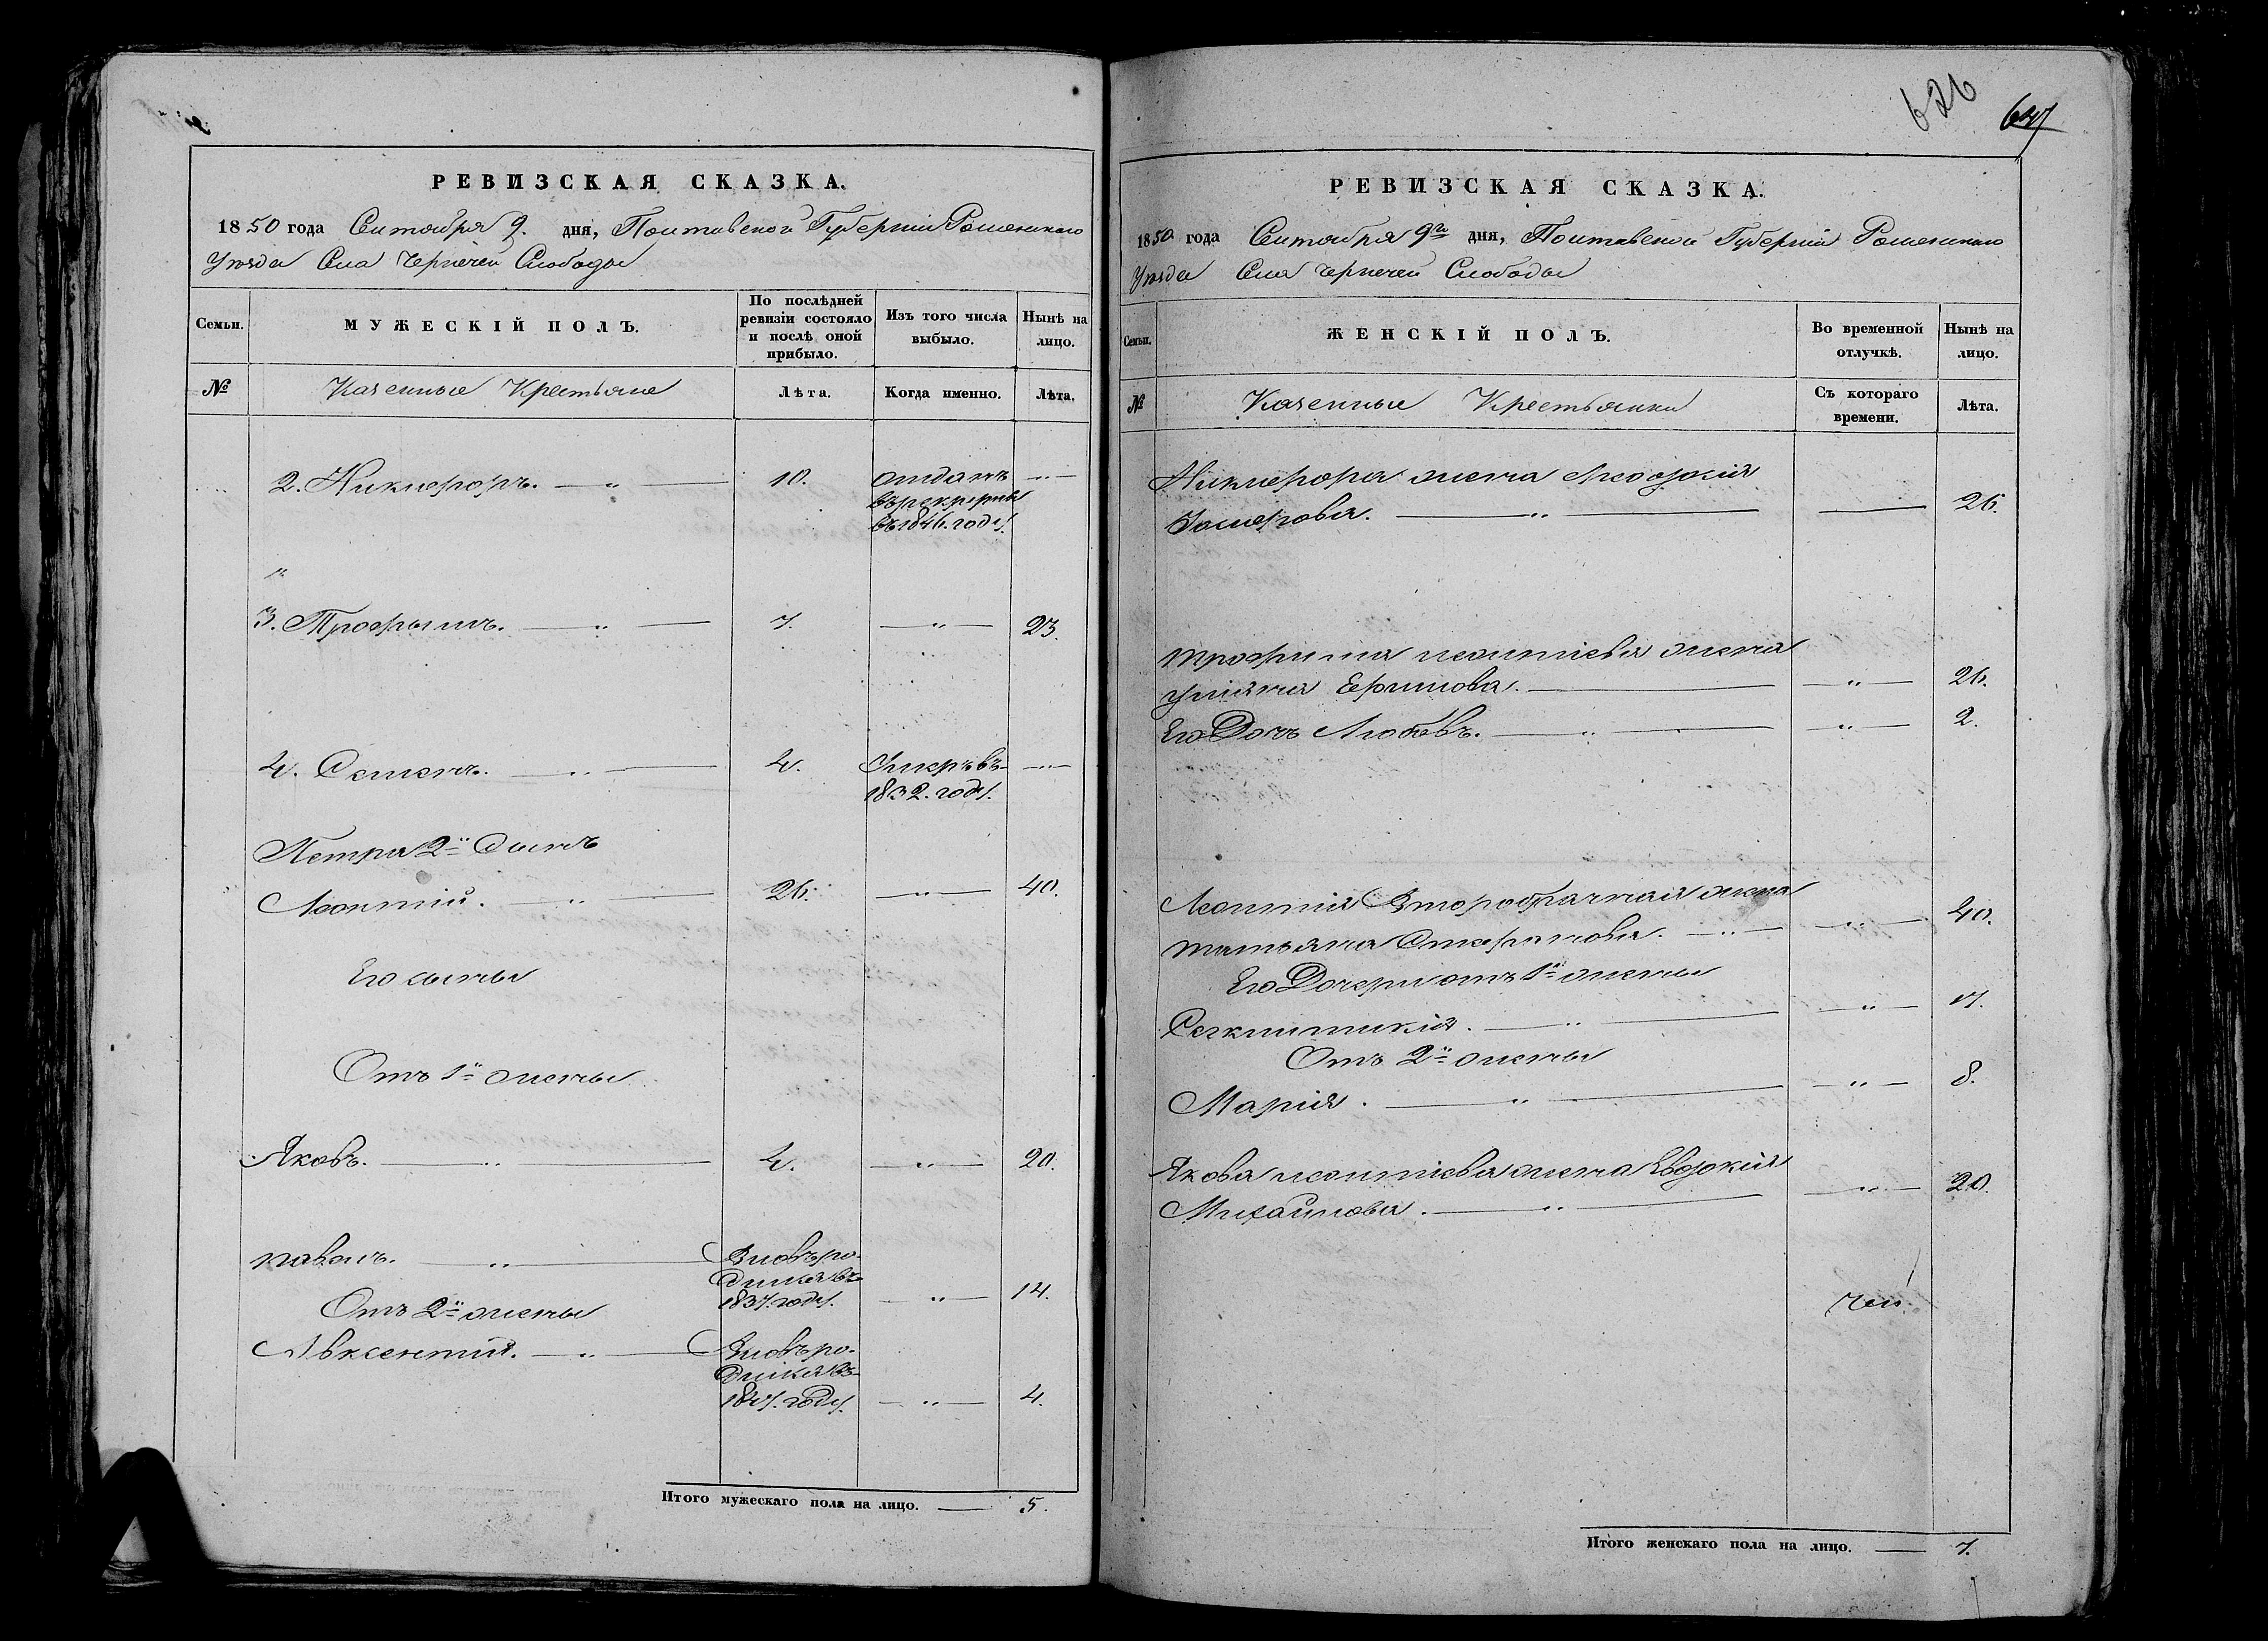 РЕВИЗСКАЯ СКАЗКА.
1850 года Сентября 9. дня, Полтавской Губерніи Роменскаго
Уѣзда Села Чернечей Слободы
Семьи.
МУЖЕСКІЙ ПОЛЪ.
По послѣдней ревизіи состояло и послѣ оной прибыло.
Изъ того числа выбыло.
Нынѣ на лицо.
№
Казенные Крестьяне
Лѣта.
Когда именно.
Лѣта.
2. Никифоръ. 10. отданъ
въ рекруты
въ 1846. году.
3. Трофимъ. 7. 23.
4. Семенъ. 4. Умеръ въ
1832. году.
Петра 2й Сынъ
Леонтий. 26. 40.
Его сыны
Отъ 1й жены
Яковъ. 4. 20.
павелъ. Вновь ро-
дился въ
1837. году. 14.
Отъ 2й жены
Авксентий. Вновь ро-
дился въ
1847. году. 4.
Итого мужескаго пола на лицо. 5.
626 647
РЕВИЗСКАЯ СКАЗКА.
1850 года Сентября 9го дня, Полтавской Губерніи Роменскаго
Уѣзда Села Чернечей Слободы
Семьи.
ЖЕНСКІЙ ПОЛЪ.
Во временной отлучкѣ.
Нынѣ на лицо.
№
Казенные Крестьянки
Съ котораго времени.
Лѣта.
Никифора жена
26.
трофима леонтіева жена
уліяна Ефимова. 26.
Его Дочь Любовь. 2.
Леонтія Второбрачная жена
татьяна Стефанова. 40.
Его Дочери отъ 1й жены
17.
Отъ 2й жены
Марія. 8.
Якова леонтіева жена Евдокія
Михайлова. 20.
Итого женскаго пола на лицо. 7.